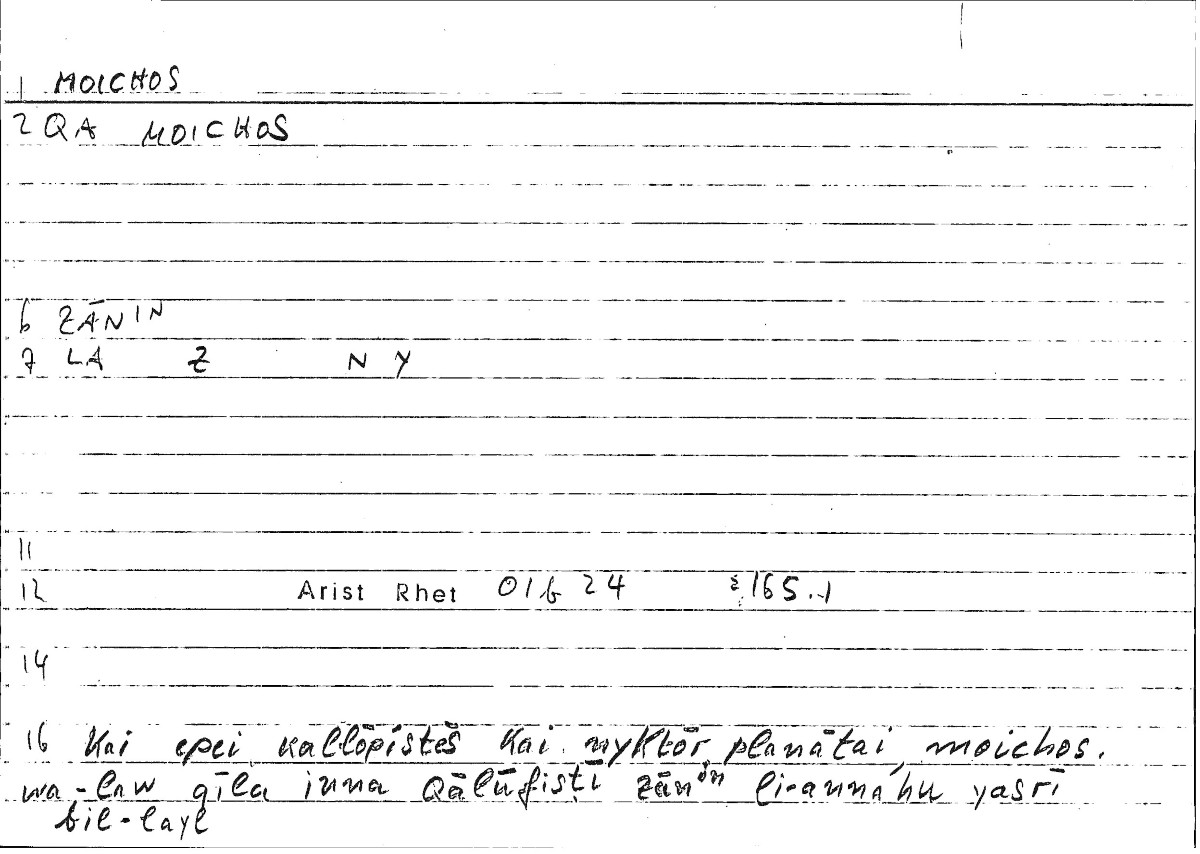 1 MOICHOS
2 QA MOICHOS
6 ZĀNIN
7 LA Z N Y
11
12 Arist Rhet 01b 24 165.1
14
16 Kai epei kallōpistēs kai nyktōr planātai, moichos.
wa-law qīla inna Qālūfisṭī zānⁱⁿ li-annahu yasrī
bil-layl